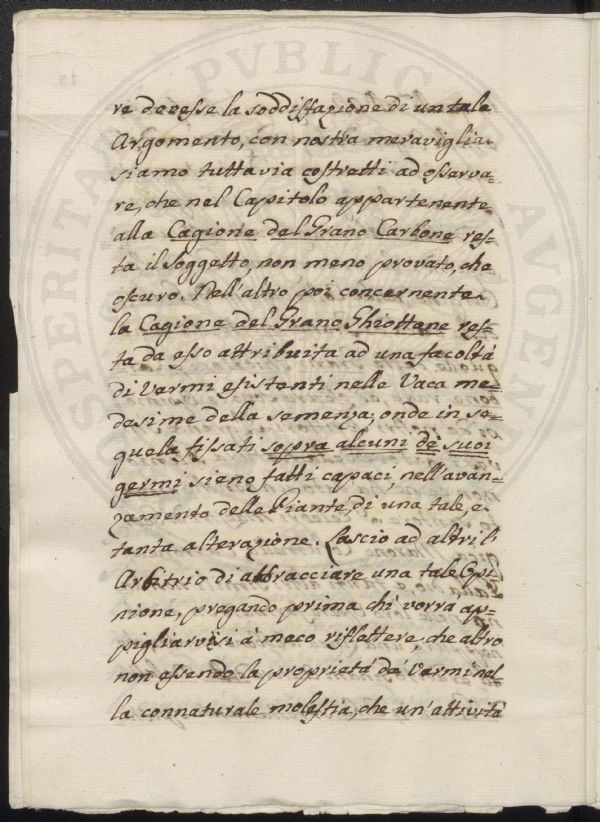 re dovesse la soddisfazione di un tale
Argomento, con nostra meraviglia
siamo tuttavia costretti ad osserva-
re, che nel Capitolo appartenente
alla Cagione del Grano Carbone res-
ta il Soggetto, non meno provato, che
oscuro. Nell'altro poi concernente
la Cagione del Grano Ghiottone res-
ta da esso attribuita ad una facoltà
di Vermi esistenti nelle Vaca me-
desime della semenza; onde in se-
quela fissati sopra alcuni de suoi
germi sieno fatti capaci, nell'avan-
zamento delle Piante, di una tale, e
tanta alterazione. Lascio ad altrui
Arbitrio di abbracciare una tale Opi-
nione, pregando prima chi vorrà ap-
pigliarvisi à meco riflettere, che altro
non essendo la proprietà da Vermi nel-
la connaturale molestia, che un'attività
PVBLIC
AVGENT